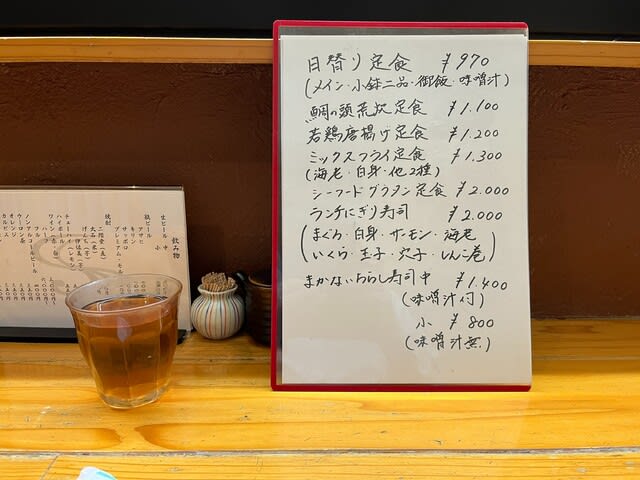 日替り定食 ¥970
(メイン・小鉢二品・御飯・味噌汁)
鯛の頭荒炊定食 ¥1.100
若鶏唐揚げ定食 ¥1.200
ミックスフライ定食 ¥1.300
(海老・白身・他2種)
シーフードグラタン定食 ¥2.000
ランチにぎり寿司 ¥2.000
(まぐろ・白身・サーモン・海老
いくら・玉子・穴子・しんこ巻)
まかないちらし寿司中 ¥1.400
(味噌汁付)
小 ¥800
(味噌汁無)
飲み物
生ビール 中
小
瓶ビール アサヒ
キリン
サッポロ
焼酎
ハイボール
ウーロン茶
オレンジ
カルピス